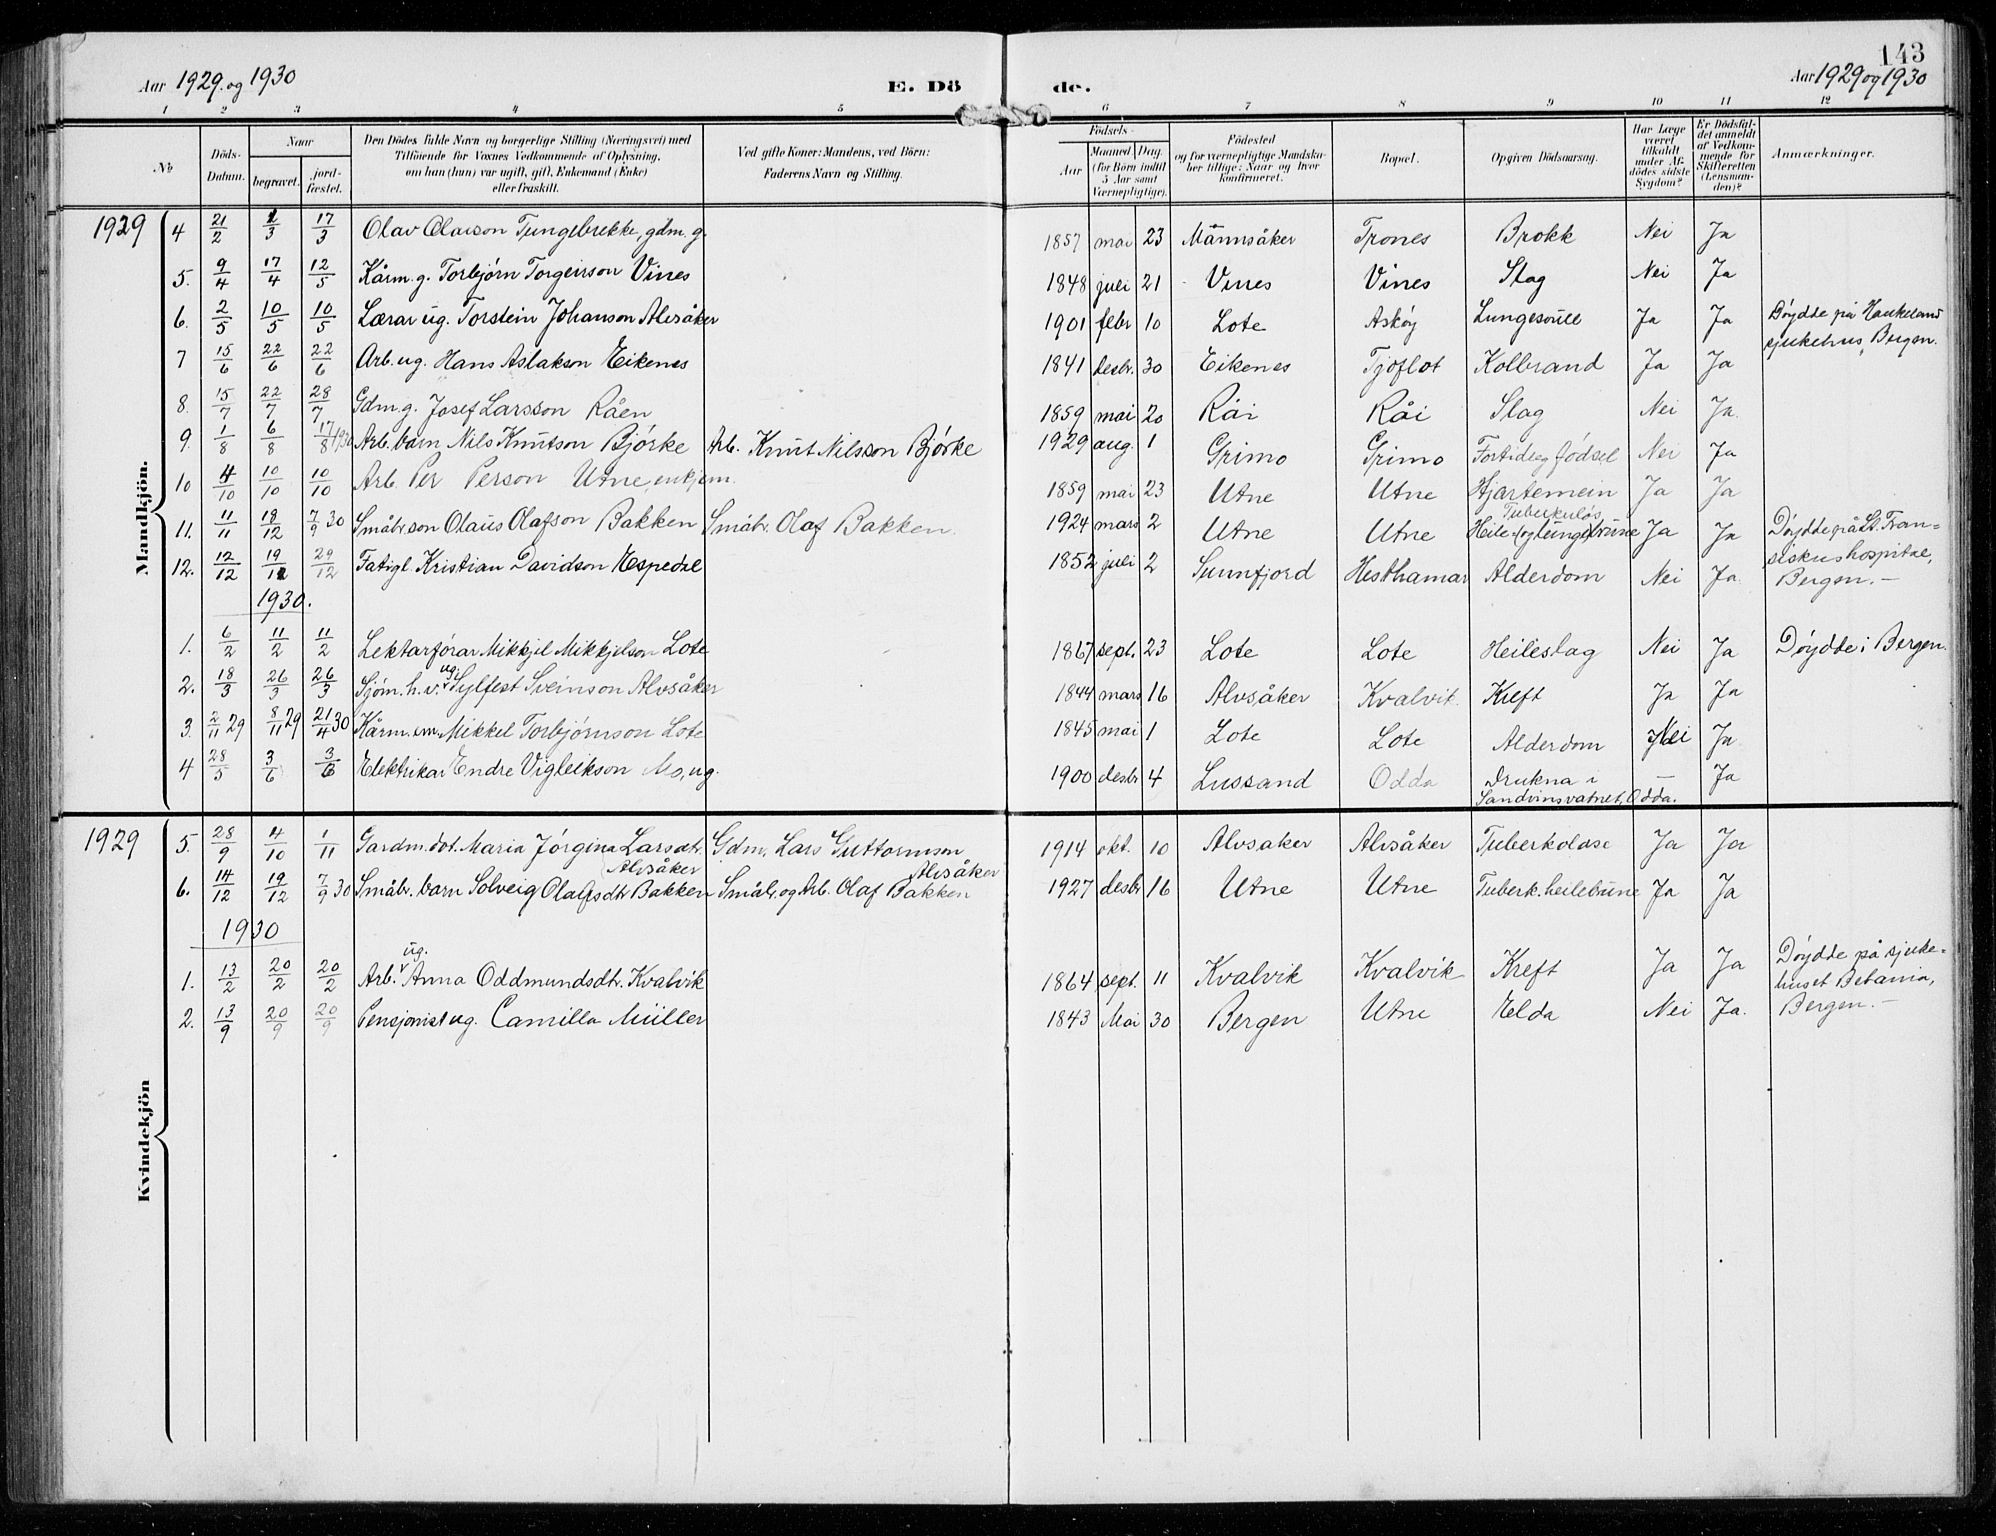 143
Aar 1929. og 1930
E. Dö
de.
Aar 1929 og 1930
1 2 3 4 5 6 7 8 9 10 11 12
No
Döds-
Datum.
Naar
begravet.
jord-
fæstet.
Den Dödes fulde Navn og borgerlige Stilling (Næringsvei) med
Tilföiende for Voxnes Vedkommende af Oplysning,
om han (hun) var ugift, gift, Enkemand (Enke)
eller fraskilt.
Ved gifte Koner: Mandens, ved Börn:
Faderens Navn og Stilling.
Födsels-
Aar
Maaned Dag
(for Börn indtil
5 Aar samt
Værnepligtige).
Födested
og for værnepligtige Mandska-
ber tillige: Naar og hvor
konfirmeret.
Bopæl.
Opgiven Dödsaarsag.
Har Læge
været
tilkaldt
under Af-
dödes sidste
Sygdom?
Er Dödsfal-
det anmeldt
af Vedkom-
mende for
Skifteretten
(Lensman-
den)?
Anmærkninger.
Mandkjön.
1929 4 21/2 2/3 17/3 Olav Olavson Tungebrekke, gdm. g. 1857 mai 23 Månnsåker Trones Brokk Nei Ja
5. 9/4 17/4 12/5 Kårm. g. Torbjørn Torgeirson Vines 1848 juli 21 Vines Vines Slag Nei Ja
6. 2/5 10/5 10/5 Lærar ug. Torstein Johanson Alvsåker 1901 febr 10 Lote Askøy Ja Ja Døydde på Haukeland
sjukehus, Bergen.
7 15/6 22/6 22/6 Arb. ug. Hans Aslakson Eikenes 1841 desbr. 30 Eikenes Tjoflot Kolbrand Ja Ja
8. 15/7 22/7 28/7 Gdm. g. Josef Larsson Råen 1859 mai 20 Råi Råi Slag Nei Ja.
9. 1/8 6/8 17/8 1930 Arb. barn Nils Knutson Bjørke Arb. Knut Nilsson Bjørke 1929 aug. 1 Grimo Grimo Fortidleg fødsel Nei Ja
10 4/10 10/10 10/10 Arb. Per Person Utne, enkjem. 1859 mai 23 Utne Utne Hjartemein Ja Ja
11. 11/11 18/12 7/9 30 Småbr.son Olaus Olafson Bakken Småbr. Olaf Bakken. 1924 mars 2 Utne Utne Tuberkuløs
Heile- (og lunge) brune Ja Ja Døydde på St. Fran-
siskushospital,
Bergen.-
12. 12/12 19/12 29/12 Fatigl. Kristian Davidson Espedal 1852 juli 2 Sunnfjord Hesthamar Alderdom Nei Ja.
1930.
1. 6/2 11/2 11/2 Lektarførar Mikkjel Mikkjelson Lote 1867 sept. 23 Lote Lote Heileslag Nei Ja Døydde i Bergen.
2. 18/3 26/3 26/3 Sjøm. h.v. ug. Sylfest Sveinson Alvsåker 1844 mars 16 Alvsåker Kvalvik Kreft Ja Ja
3. 2/11 29 8/11 29 21/4 30 Kårm. em. Mikkel Torbjørnson Lote 1845 mai 1 Lote Lote Alderdom Nei Ja
4 28/5 3/6 3/6 Elektrikar Endre Vigleikson Mo, ug. 1900 desbr 4 Lussand Odda Drukna i
Sandvinsvatnet, Odda. — Ja
Kvindekjön
1929 5. 28/9 4/10 1/11 Gardm. dot. Maria Jørgina Larsdtr.
Alvsåker Gdm. Lars Guttormson
Alvsåker 1914 okt. 10 Alvsaker Alvsåker Tuberkolose Ja Ja
6. 14/12 19/12 7/9 30 Småbr. barn Solveig Olafsdtr Bakken Småbr. og Arb. Olaf Bakken 1927 desbr 16 Utne Utne Tuberk. heilebrune Ja Ja
1930
1. 13/2 20/2 20/2 Arb. ug. Anna Oddmundsdtr. Kvalvik 1864 sept. 11 Kvalvik Kvalvik Kreft Ja Ja Døydde på sjuke-
huset Betania,
Bergen.-
2. 13/9 20/9 20/9 Pensjonist ug. Camilla Müller 1843 Mai 30 Bergen Utne Elda Nei Ja.